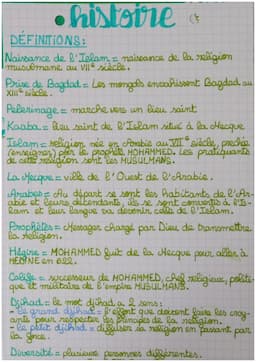 histoire
DÉFINITIONS:
Naissance de l'Islam = naissance de la religion
musulmane au VIIe siècle.
Prise de Bagdad = Les mongols envahissent Bagdad au
XIIIe siècle.
Pelerinage = marche vers un lieu saint
Kaaba = lieu saint de l'Islam situé à la Mecque
Islam = religion née en Arabie au VIIe siècle, prechée
(enseignée) par le prophète MOHAMMED. Les pratiquants
de cette religion sont les MUSULMANS.
La Mecque = ville de l'Ouest de l'Arabie.
Arabes = Au départ se sont les habitants de l'Ar-
abie et leurs déscendants, ils se sont convertis à l'Is-
lam et leur langue va devenir celle de l'Islam.
Prophètes = Messager chargé par Dieu de transmettre
la religion.
Hégire = MOHAMMED fuit de la Mecque pour aller à
MEDINE en 622.
Calife = successeur de MOHAMMED, chef religieux, politi-
que et militaire de l'empire MUSULMANS.
Djihad = le mot djihad a 2 sens:
- le grand djihad = l'effort que doivent faire les croy-
ants pour respecter les principes de la religion.
- le petit djihad = diffuser sa religion en passant par
la force.
Diversité = plusieurs personnes différentes.